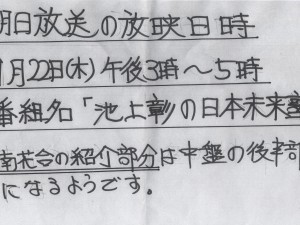 朝日放送の放映日時
1月22日(木)午後3時～5時
番組名「池上彰の日本未来塾
南花会の紹介部分は中盤の後半部
になるようです。